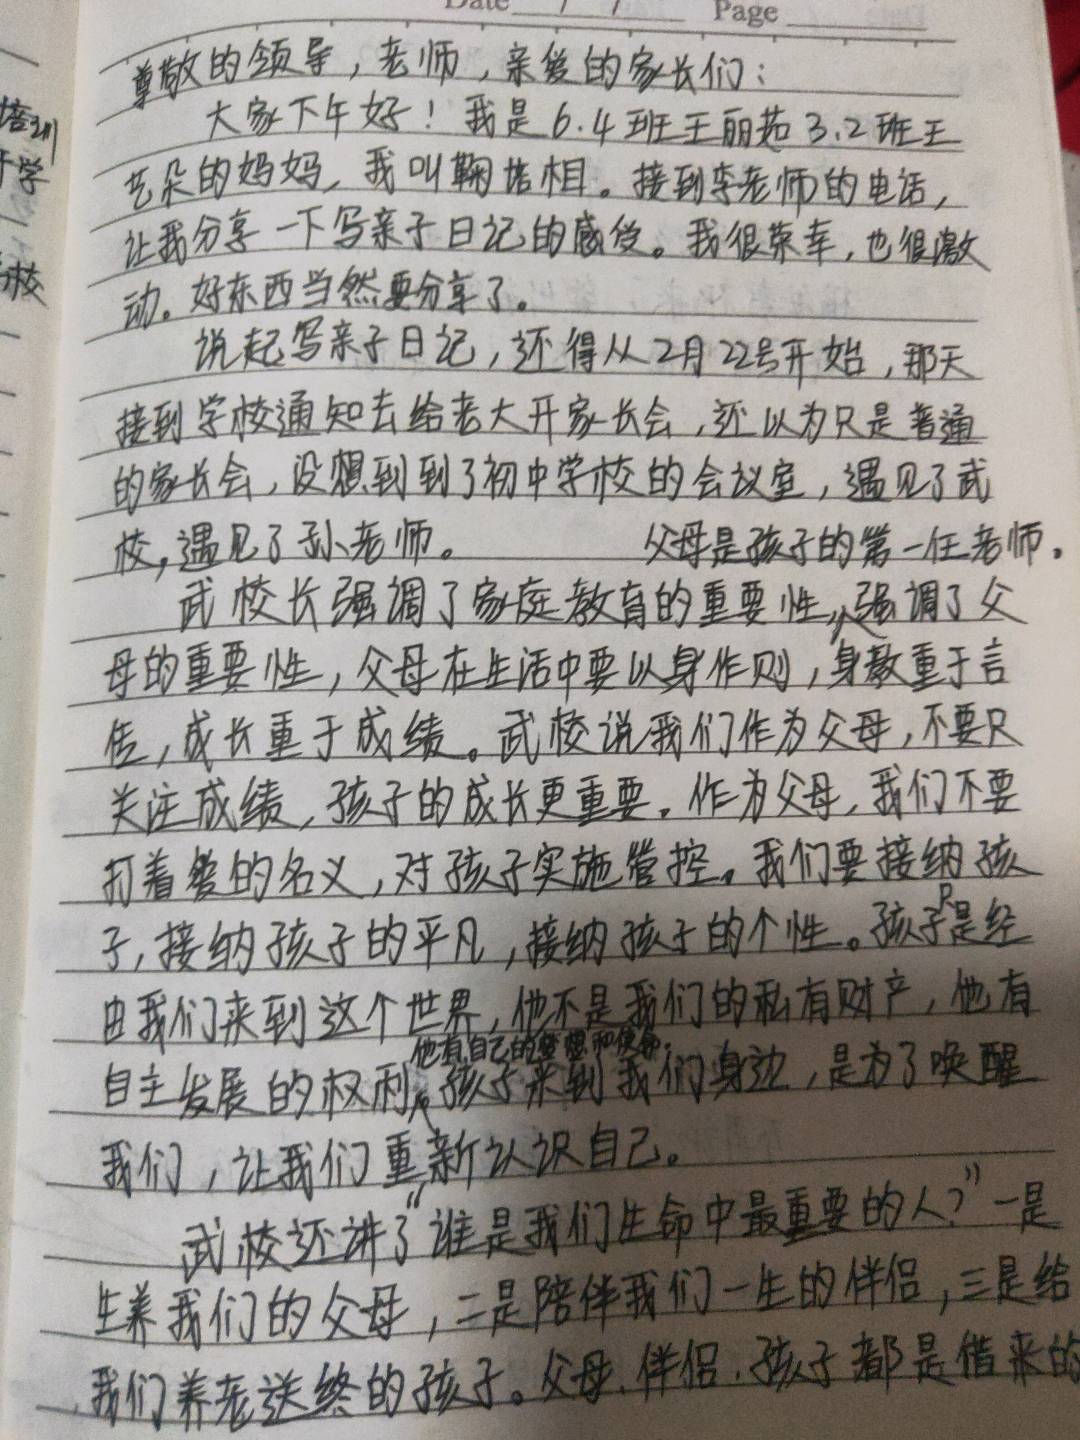 Date / / Page
尊敬的领导，老师，亲爱的家长们：
大家下午好！我是6.4班王丽茹3.2班王
艺朵的妈妈，我叫鞠培相。接到李老师的电话，
让我分享一下写亲子日记的感受。我很荣幸，也很激
动。好东西当然要分享了。
说起写亲子日记，还得从2月22号开始，那天
接到学校通知去给老大开家长会，还以为只是普通
的家长会，没想到到了初中学校的会议室，遇见了武
校，遇见了孙老师。 父母是孩子的第一任老师，
武校长强调了家庭教育的重要性，强调了父
母的重要性，父母在生活中要以身作则，身教重于言
传，成长重于成绩。武校说我们作为父母，不要只
关注成绩，孩子的成长更重要。作为父母，我们不要
打着爱的名义，对孩子实施管控。我们要接纳孩
子，接纳孩子的平凡，接纳孩子的个性。孩子只是经
由我们来到这个世界，他不是我们的私有财产，他有
他有自己的梦想和使命。
自主发展的权利，孩子来到我们身边，是为了唤醒
我们，让我们重新认识自己。
武校还讲了"谁是我们生命中最重要的人？"一是
生养我们的父母，二是陪伴我们一生的伴侣，三是给
我们养老送终的孩子。父母、伴侣、孩子都是借来的
培训
学
校